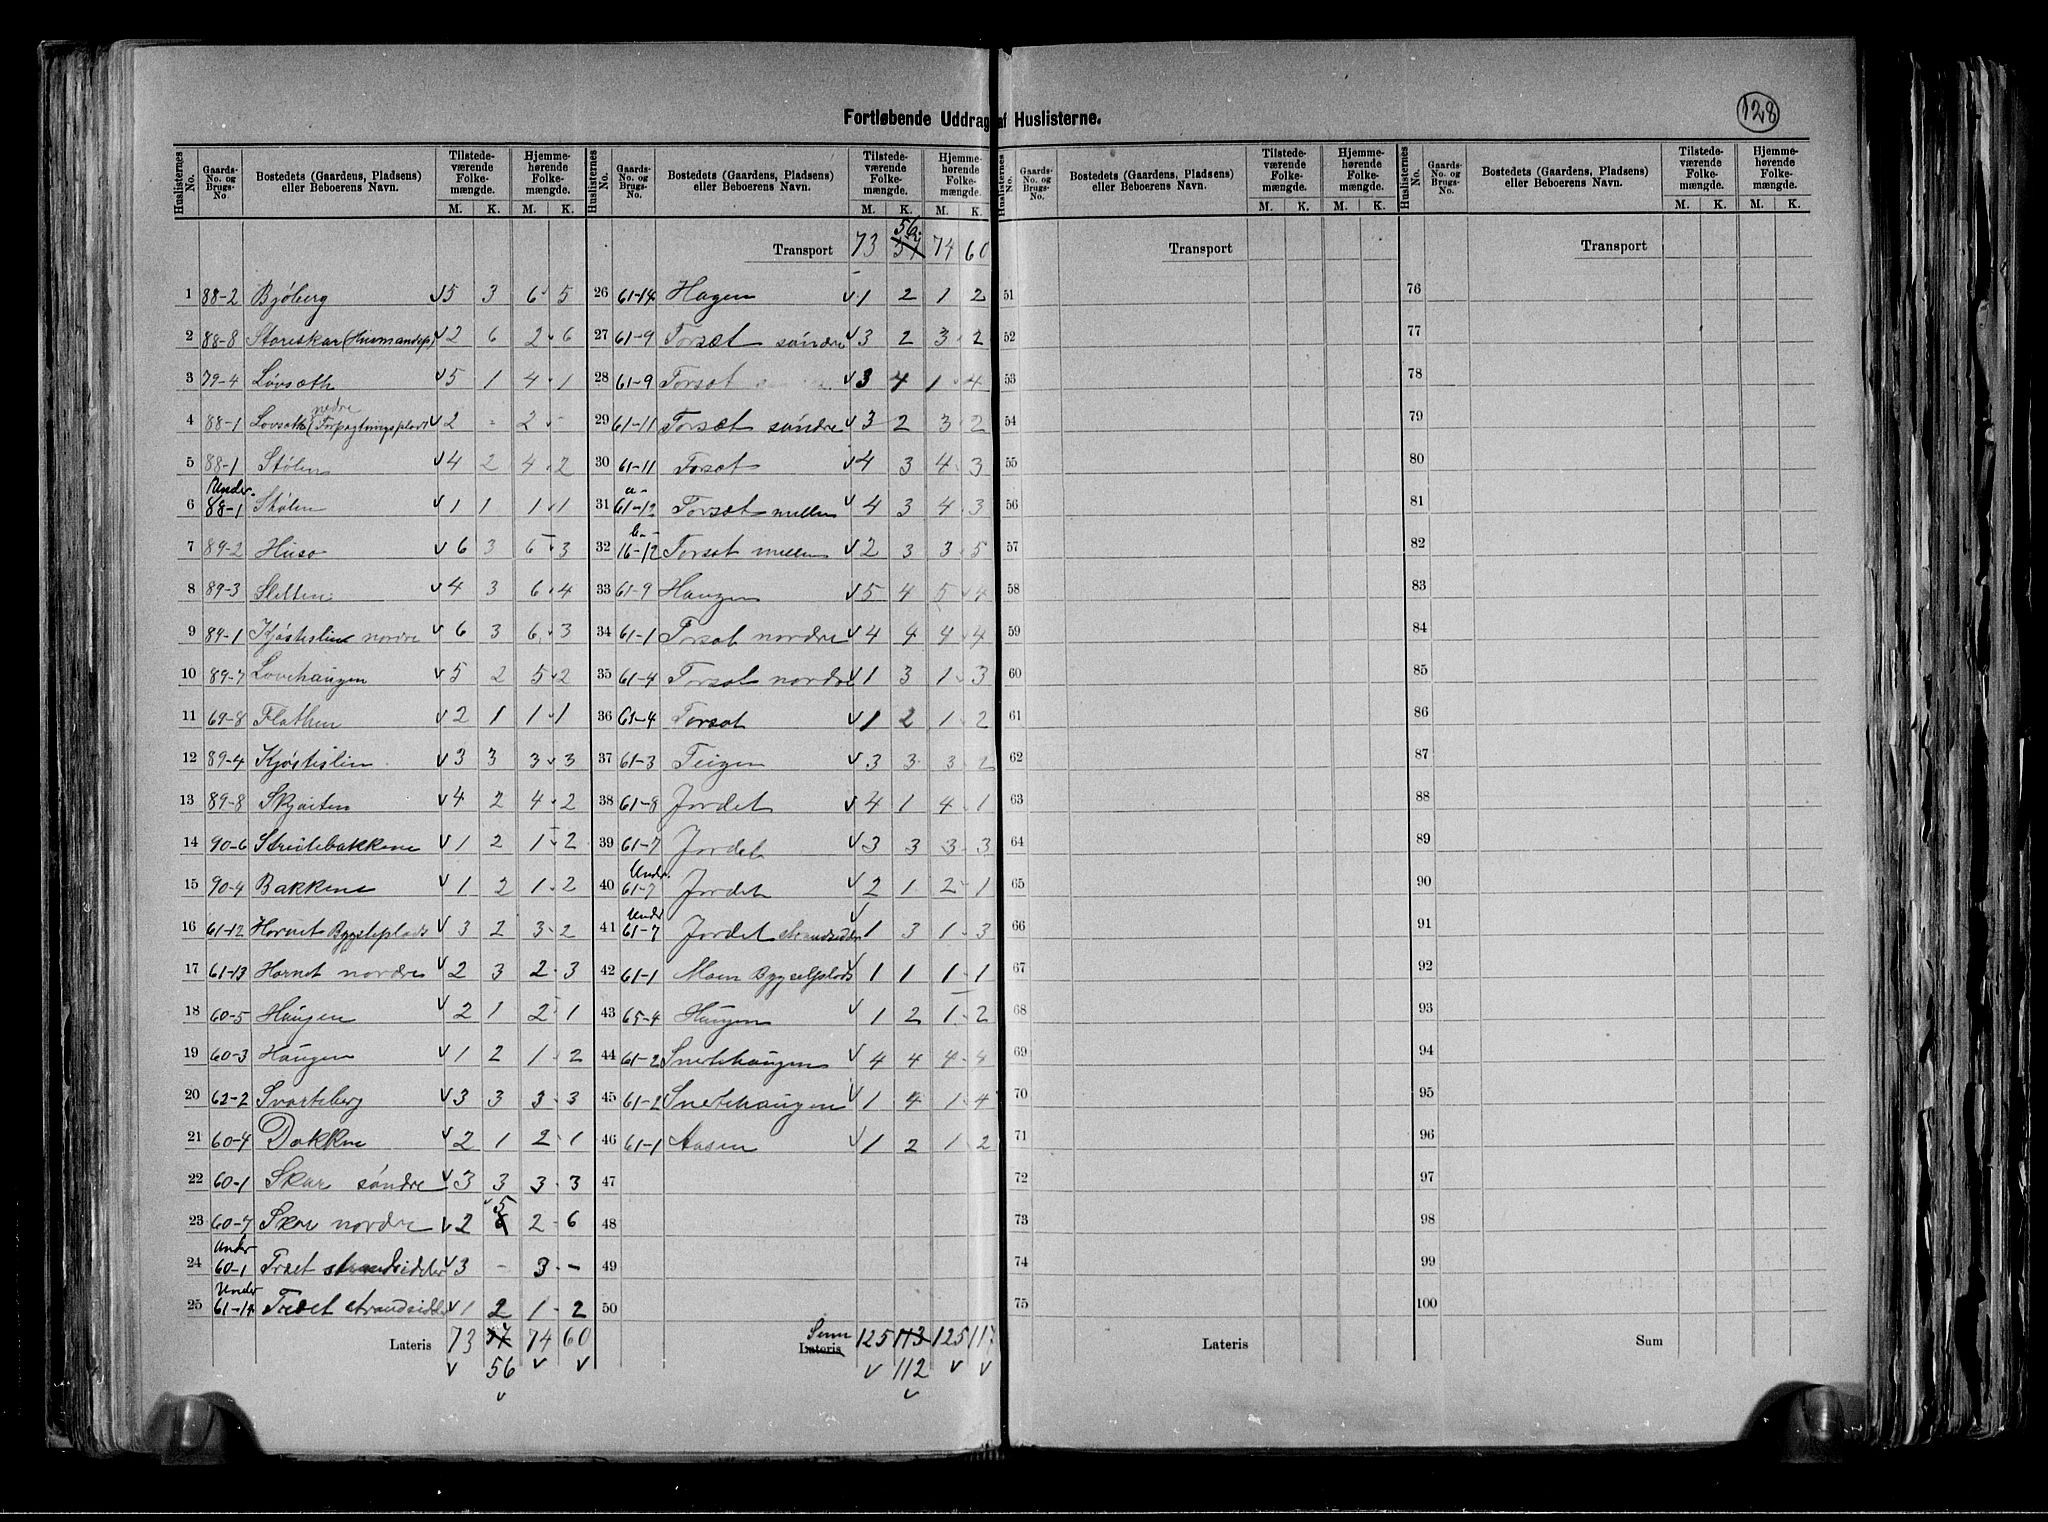 128
Fortløbende Uddrag af Huslisterne.
Huslisternes No. Gaards-No. og Brugs-No Bostedets (Gaardens, Pladsens) eller Beboerens Navn. Tilstedeværende Folkemængde. M. K. Hjemmehørende Folkemængde. M. K.
1 88-2 Bjøberg v 5 3 6 5
2 88-8 Storeskar (Husmandspl) v 2 6 2 6
3 79-4 Løvsæth v 5 1 4 1
4 88-1 Løvsæth nedre (Forpagtningsplads v 2 - 2 -
5 88-1 Stølen v 4 2 4 2
6 Under 88-1 Stølen v 1 1 1 1
7 89-2 Huso v 6 3 6 3
8 89-3 Sletten v 4 3 6 4
9 89-1 Kjøstislien nordre v 6 3 6 3
10 89-7 Løvehaugen v 5 2 5 2
11 69-8 Flathen v 2 1 1 1
12 89-4 Kjøstislien v 3 3 3 3
13 89-8 v 4 2 4 2
14 90-6 Streitebakkene v 1 2 1 2
15 90-4 Bakkene v 1 2 1 2
16 61-12 Hornet Bygselplads v 3 2 3 2
17 61-13 Hornet nordre v 2 3 2 3
18 60-5 Haugen v 2 1 2 1
19 60-3 Haugen v 1 2 1 2
20 62-2 Svarteberg v 3 3 3 3
21 60-4 Dokken v 2 1 2 1
22 60-1 Skar søndre v 3 3 3 3
23 60-7 Skar nordre v 2 6 5 2 6
24 Under 60-1 Træet strandsidder v 3 - 3 -
25 Under 61-14 Træet strandsidder v 1 2 1 2
Lateris 73 57 74 60
v 56 v v
v
Huslisternes No. Gaards-No. og Brugs-No. Bostedets (Gaardens, Pladsens) eller Beboerens Navn. Tilstedeværende Folkemængde. M. K. Hjemmehørende Folkemængde. M. K.
Transport 73 57 56 74 60
26 61-14 Hagen v 1 2 1 2
27 61-9 Torsæt søndre v 3 2 3 2
28 61-9 Torsæt v 3 4 1 4
29 61-11 Torsæt søndre v 3 2 3 2
30 61-11 Torsæt v 4 3 4 3
31 a- 61-12 Torsæt mellem v 4 3 4 3
32 b- 16-12 Torsæt mellem v 2 3 3 5
33 61-9 Haugen v 5 4 5 4
34 61-1 Torsæt nordre v 4 4 4 4
35 61-4 Torsæt nordre v 1 3 1 3
36 61-4 Torsæt v 1 2 1 2
37 61-3 Teigen v 3 3 3 2
38 61-8 Jordet v 4 1 4 1
39 61-7 Jordet v 3 3 3 3
40 Under 61-7 Jordet v 2 1 2 1
41 Under 61-7 Jordet strandsidder v 1 3 1 3
42 61-1 Moen Bygselplads v 1 1 1 1
43 65-4 Haugen v 1 2 1 2
44 61-2 Snertehaugen v 4 4 4 4
45 61-2 Snertehaugen v 1 4 1 4
46 61-1 Aasen v 1 2 1 2
47
48
49
50
Sum Lateris 125 113 125 117
v 112 v v
v
Huslisternes No. Gaards-No. og Brugs-No. Bostedets (Gaardens, Pladsens) eller Beboerens Navn. Tilstedeværende Folkemængde. M. K. Hjemmehørende Folkemængde. M. K.
Transport
51
52
53
54
55
56
57
58
59
60
61
62
63
64
65
66
67
68
69
70
71
72
73
74
75
Lateris
Huslisternes No. Gaards-No. og Brugs-No. Bostedets (Gaardens, Pladsens) eller Beboerens Navn. Tilstedeværende Folkemængde. M. K. Hjemmehørende Folkemængde. M. K.
Transport
76
77
78
79
80
81
82
83
84
85
86
87
88
89
90
91
92
93
94
95
96
97
98
99
100
Sum